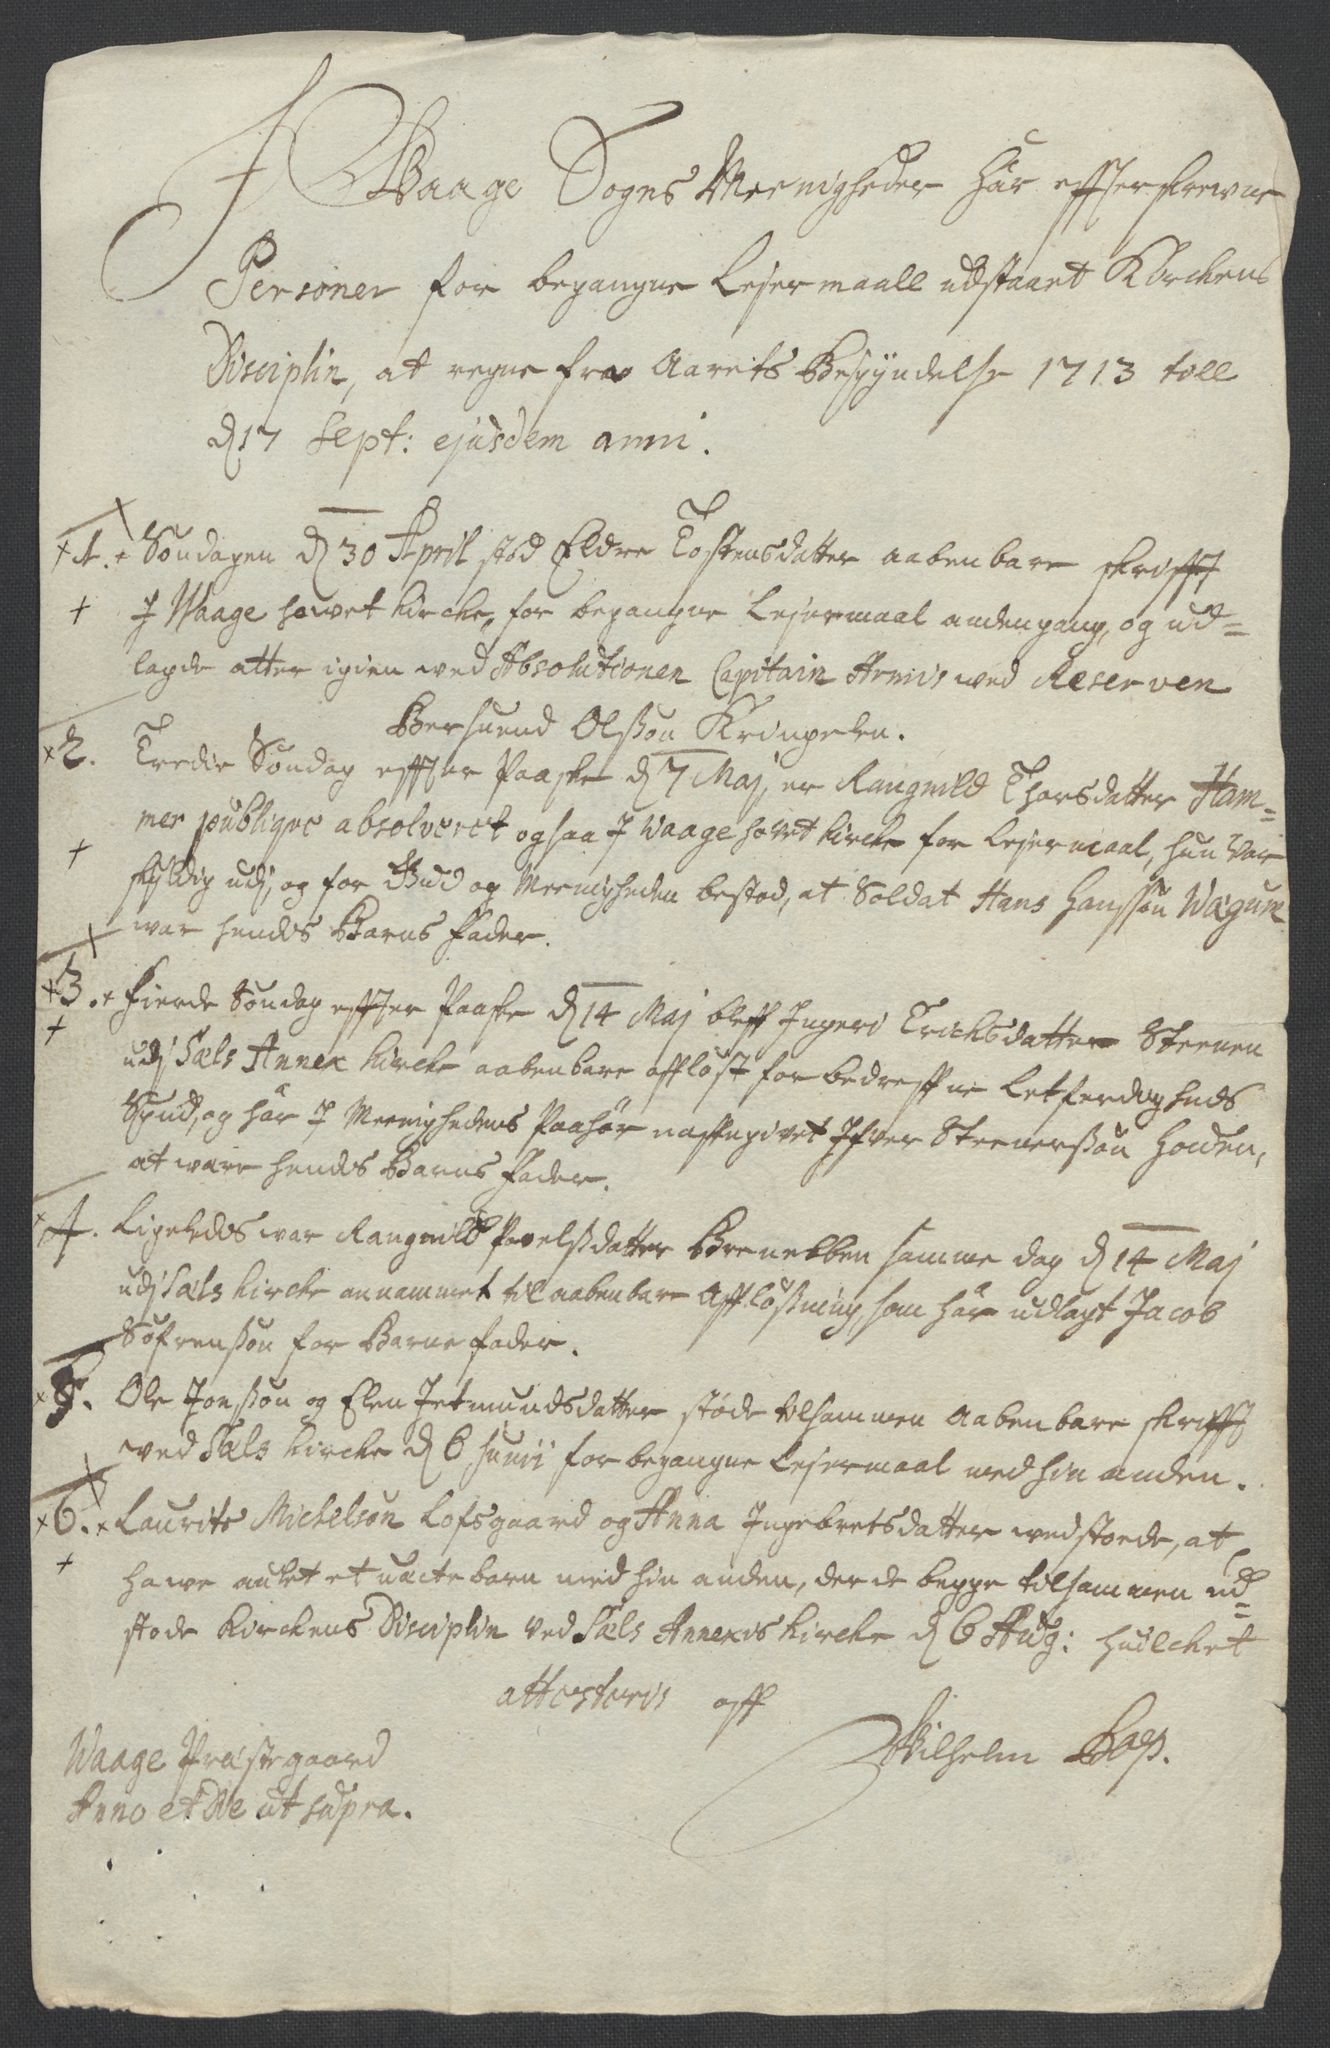 J Waage Sogns Meenigheder Här effterskrewne
Personer for begangne Lejermaall udstaaet Kirckens
Disciplin, at regne fra Aarets Begÿndelse 1713 till
d 17 Sept: ejusdem anni.
1. Söndagen d 30 April stod Eldre Tostensdatter aabenbare skrifft
J Waage howet kircke, for begangne Lejermaal andengang, og ud=
lagde atter igien wed Absolutionen Capitain Armis wed Reserven
Bersuend Olssøn Kringelen.
2. Tredie Søndag effter Paaske d 7 Maj, er Rangnild Thorsdatter Ham=
mer publique absolveret ogsaa J Waage howet kircke for Lejermaal, hun var
skÿldig udj, og for Gud og Meenigheden bestod, at Soldat Hans Hanssøn Wagum
war hendes Barns Fader.
3. Fierde Søndag effter Paaske d 14 Maj bleff Ingeri Erichsdatter Steenen
udj Sæls Annex kircke aabenbare afflöst for bedreffne Letferdigheds
Synd, og här J Meenighedens Paahör naffngivet Ifver Steenersøn Houden,
at were hendes Barns Fader.
4. Ligeledes war Rangnild Povelsdatter Brenebben samme dag d 14 Maj
udj Sæls kircke annammet til aabenbare Afflößning, som här udlagt Jacob
Söfrenssøn for Barnefader.
5. Ole Jonssøn og Elen Jetmundsdatter stode tilsammen Aabenbare skrifft
wed Sæls kircke d 6 Junij for begangne Lejermaal med hin anden.
6. Laurits Michelsøn Lofsgaard og Anna Ingebretsdatter wedstoede, at
hawe aulet et uæcte barn med hin anden, der de begge tilsammen ud=
stode Kirckens Disciplin ved Sæls Annexis kircke d 6 Aug: huilcket
attesteris aff
Wilhelm Bog.
Waage Præstegaard
Anno et Die ut supra.